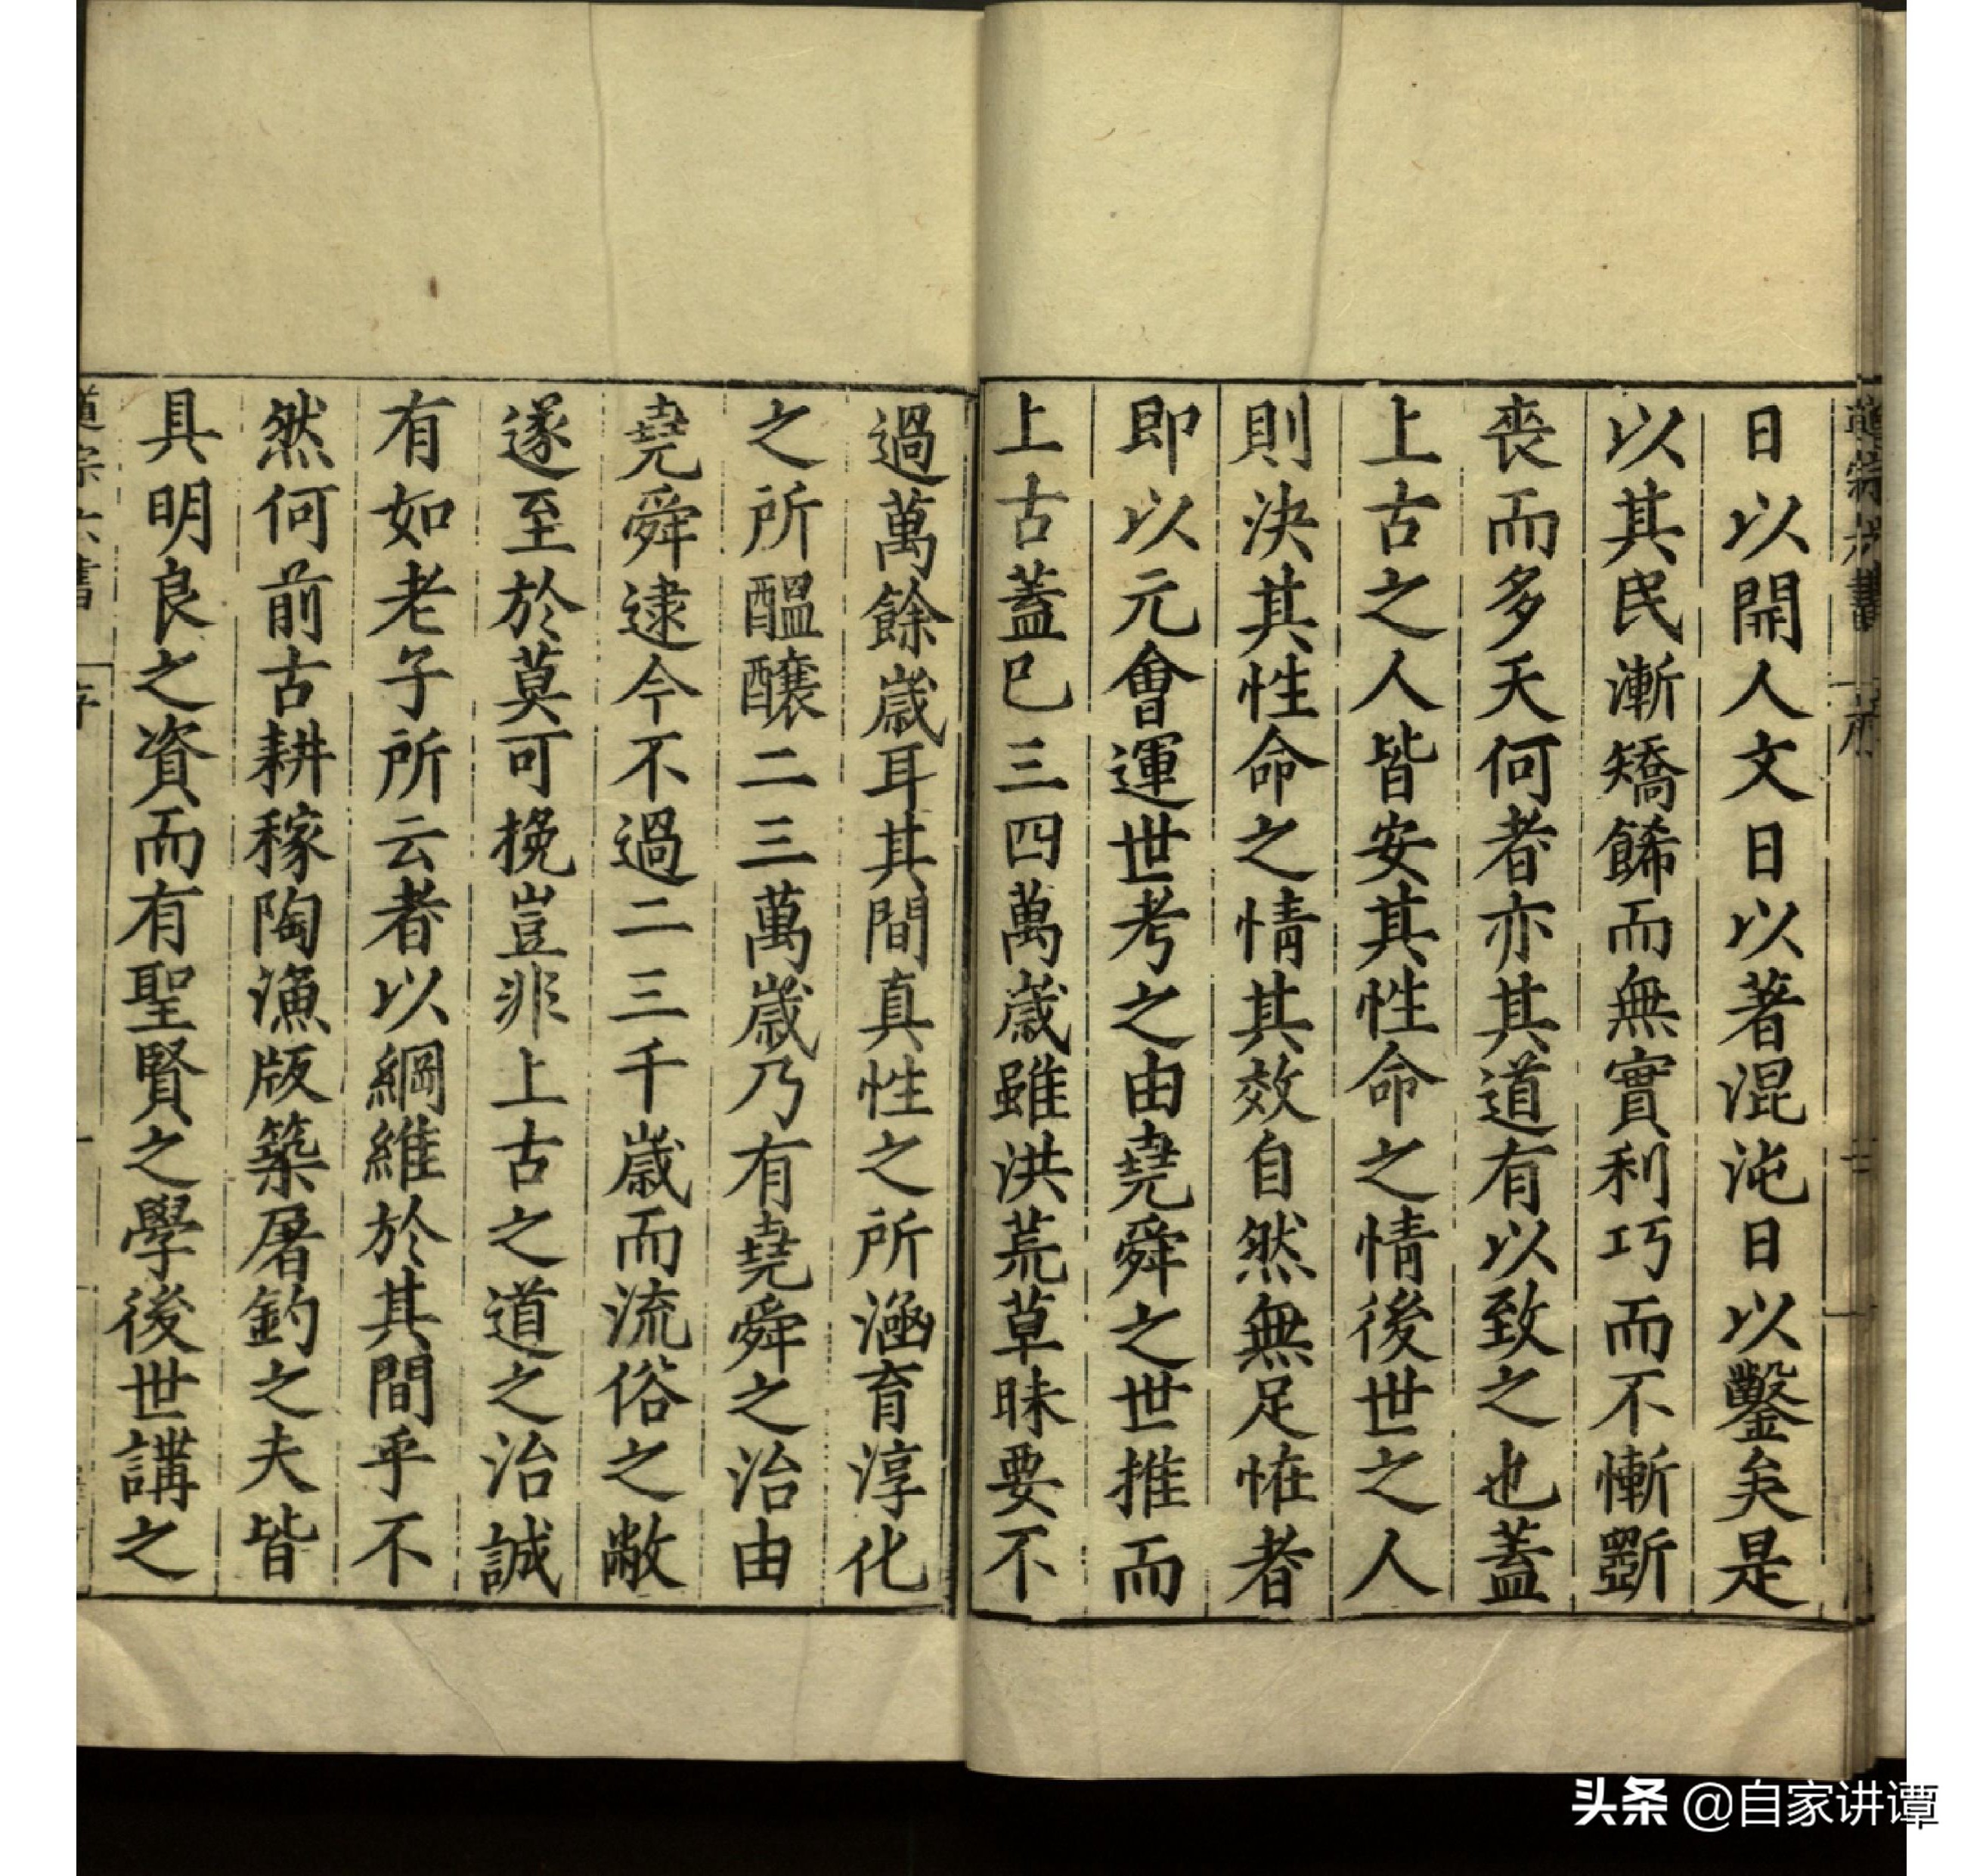 日以開人文日以著混沌日以鑿矣是
以其民漸矯餙而無實利巧而不慚斵
喪而多天何者亦其道有以致之也蓋
上古之人皆安其性命之情後世之人
則決其性命之情其效自然無足恠者
即以元會運世考之由堯舜之世推而
上古蓋已三四萬歲雖洪荒草昧要不
過萬餘歲耳其間真性之所涵育淳化
之所醞釀二三萬歲乃有堯舜之治由
堯舜逮今不過二三千歲而流俗之敝
遂至於莫可挽豈非上古之道之治誠
有如老子所云者以綱維於其間乎不
然何前古耕稼陶漁版築屠釣之夫皆
具明良之資而有聖賢之學後世講之
道宗六書 序
头条 @自家讲谭